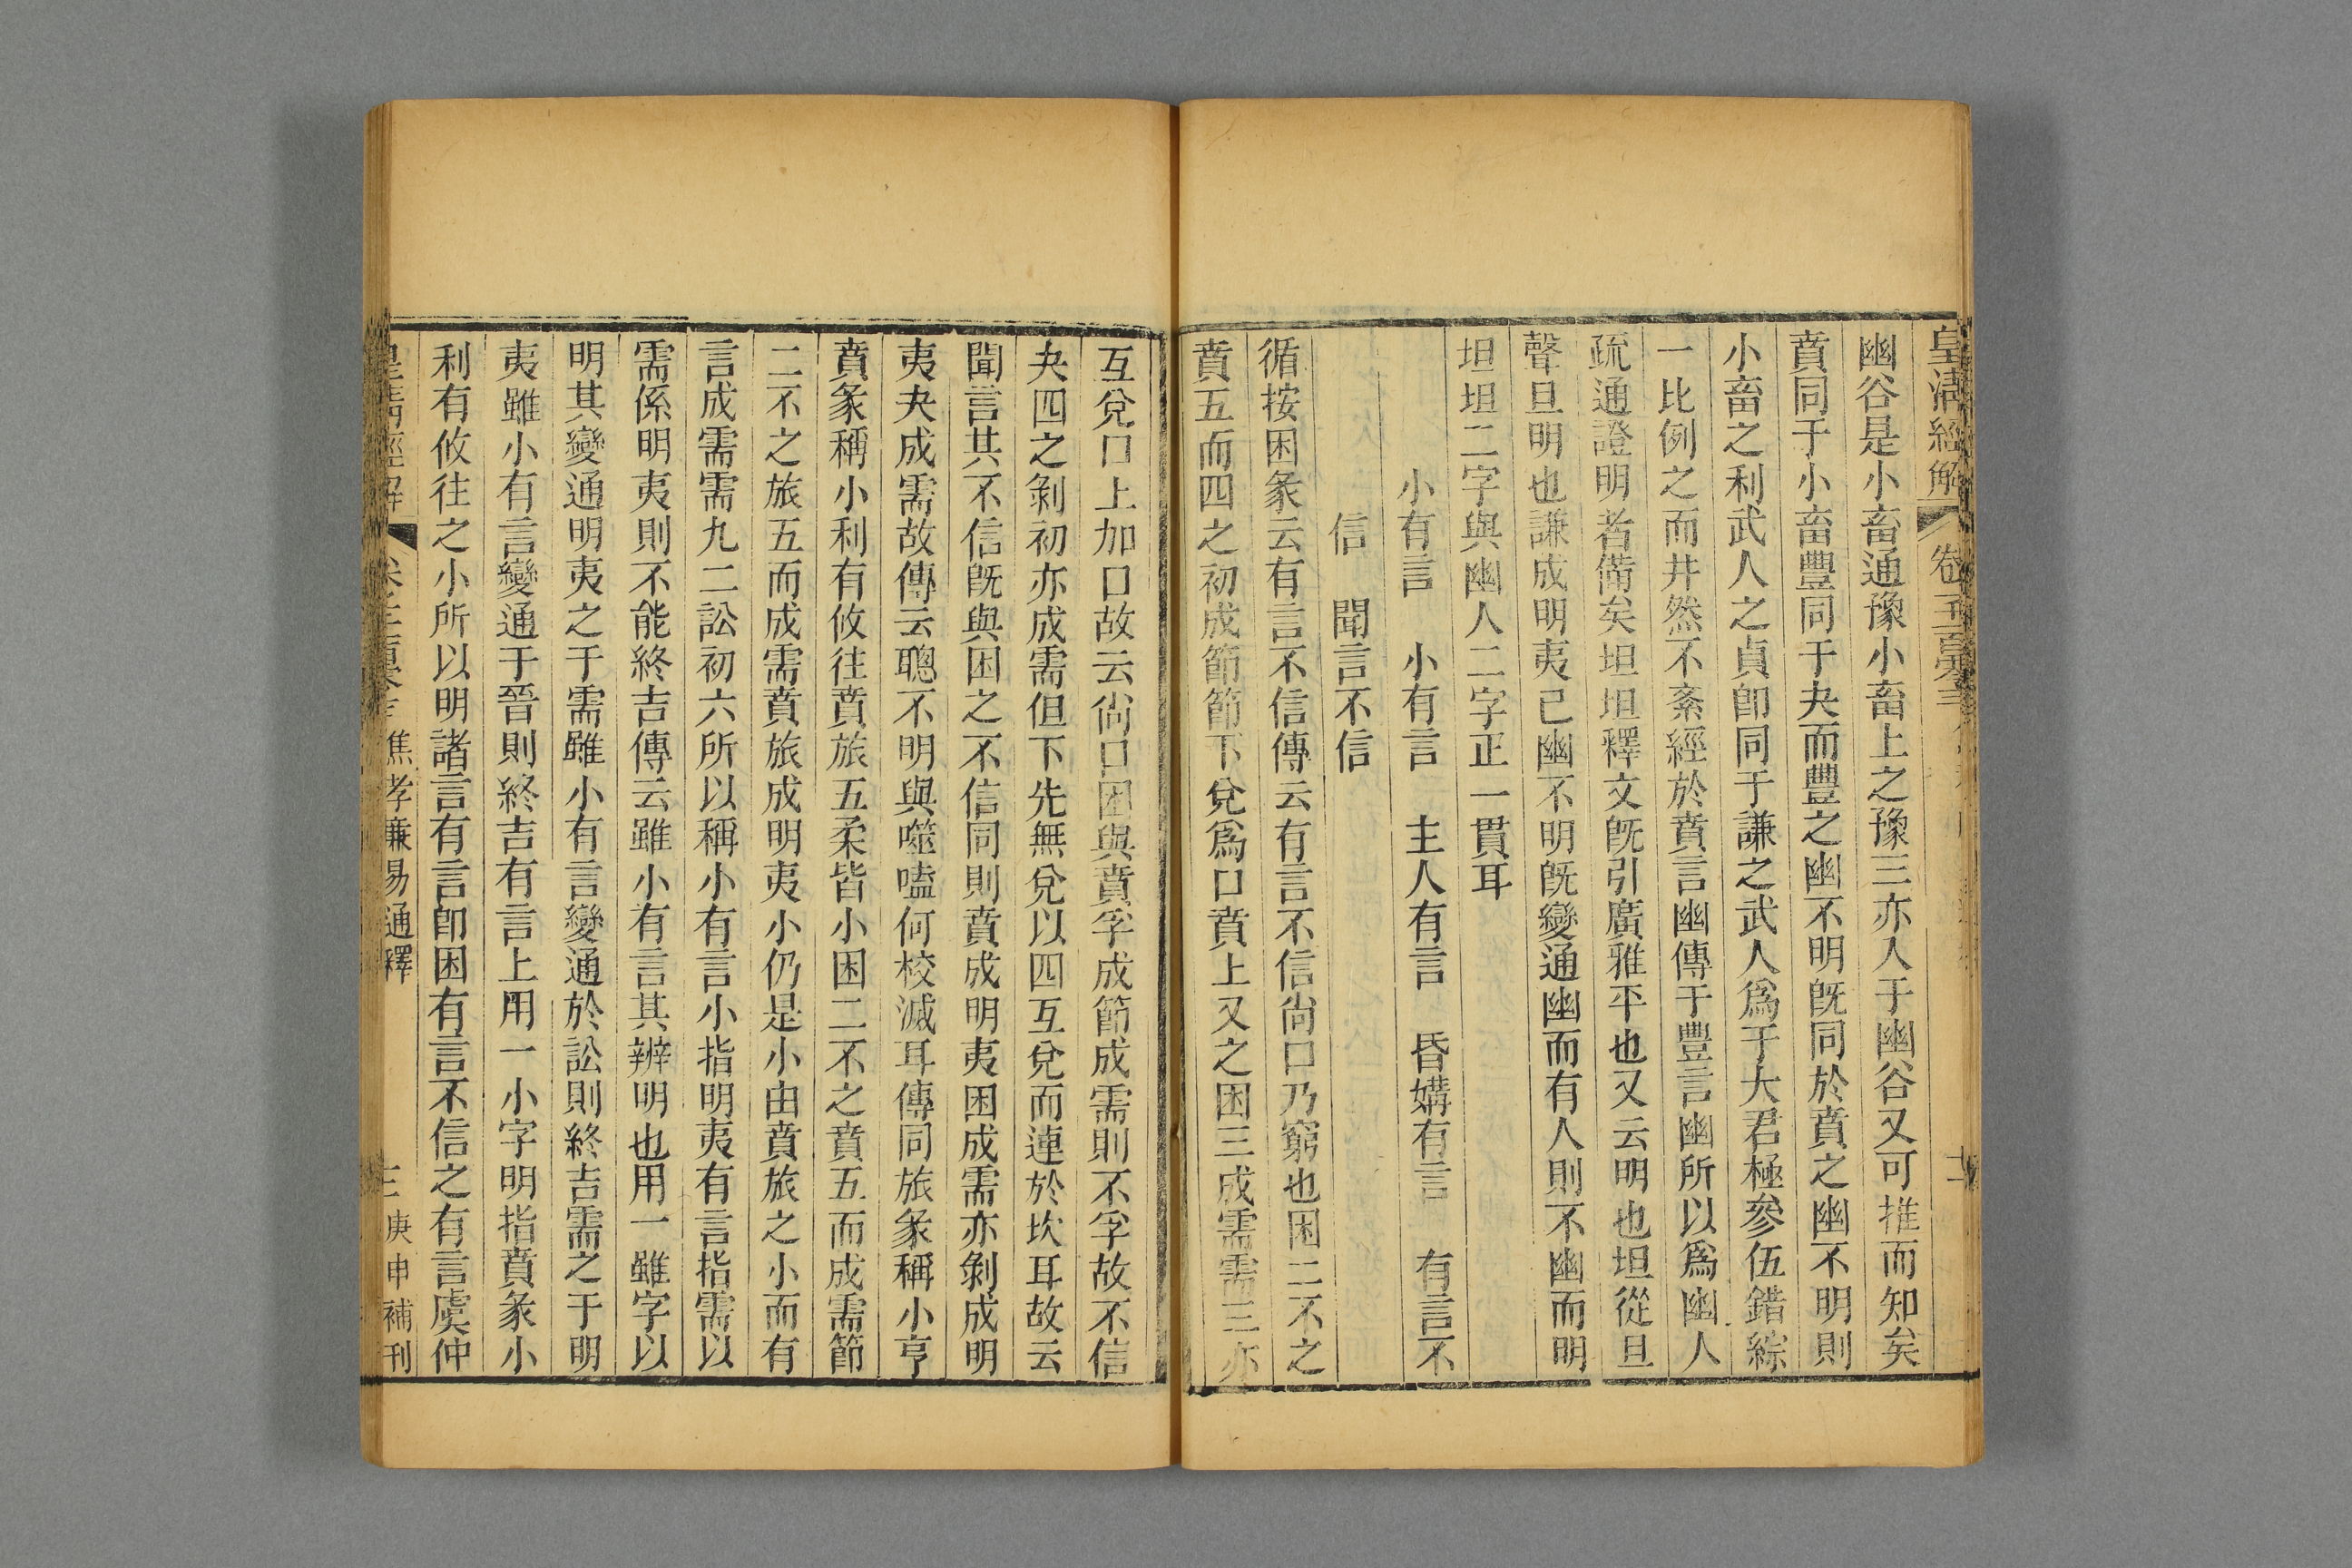 皇清經解 卷
幽谷是小畜通豫小畜上之豫三亦入于幽谷又可推而知矣
賁同于小畜豐同于夬而豐之幽不明旣同於賁之幽不明則
小畜之利武人之貞卽同于謙之武人爲于大君極參伍錯綜
一比例之而井然不紊經於賁言幽傳于豐言幽所以爲幽人
疏通證明者備矣坦坦釋文旣引廣雅平也又云明也坦從旦
聲旦明也謙成明夷已幽不明旣變通幽而有人則不幽而明
坦坦二字與幽人二字正一貫耳
小有言 小有言 主人有言 昏媾有言 有言不
信 聞言不信
循按困彖云有言不信傳云有言不信尙口乃窮也困二不之
賁五而四之初成節節下兌爲口賁上又之困三成需需三亦
互兌口上加口故云尙口困與賁孚成節成需則不孚故不信
夬四之剝初亦成需但下先無兌以四互兌而連於坎耳故云
聞言其不信旣與困之不信同則賁成明夷困成需亦剝成明
夷夬成需故傳云聰不明與噬嗑何校滅耳傳同旅彖稱小亨
賁彖稱小利有攸往賁旅五柔皆小困二不之賁五而成需節
二不之旅五而成需賁旅成明夷小仍是小由賁旅之小而有
言成需需九二訟初六所以稱小有言小指明夷有言指需以
需係明夷則不能終吉傳云雖小有言其辨明也用一雖字以
明其變通明夷之于需雖小有言變通於訟則終吉需之于明
夷雖小有言變通于晉則終吉有言上用一小字明指賁彖小
利有攸往之小所以明諸言有言卽困有言不信之有言虞仲
皇清經解 焦孝廉易通釋 三 庚申補刊